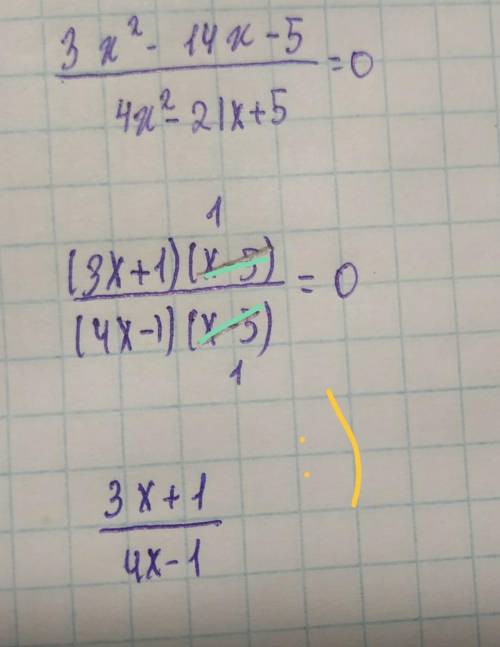 3x² - 14x - 5
4x² - 21x + 5
= 0
1
(3x+1)(x-5)
(4x-1)(x-5)
= 0
1
:)
3x+1
4x-1